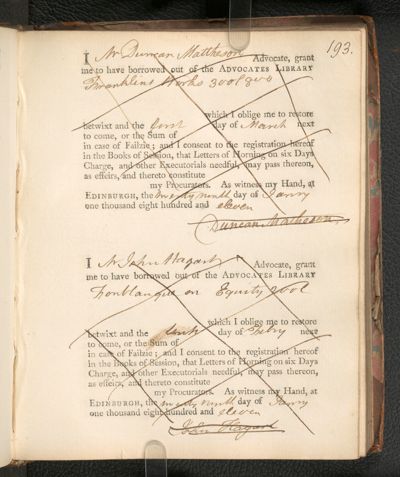 193.
I Mr Duncan Matheson Advocate, grant
me to have borrowed out of the ADVOCATES LIBRARY
Franklins Works 3 vol 8vo
which I oblige me to restore
betwixt and the first day of March next
to come, or the Sum of
in case of Failzie; and I consent to the registration hereof
in the Books of Session, that Letters of Horning on six Days
Charge, and other Executorials needful, may pass thereon,
as effeirs, and thereto constitute
my Procurators. As witness my Hand, at
EDINBURGH, the twenty ninth day of Janry
one thousand eight hundred and eleven
Duncan Matheson
I Mr John Hagart Advocate, grant
me to have borrowed out of the ADVOCATES LIBRARY
Fonblanque on Equity 2 vol
which I oblige me to restore
betwixt and the first day of Febry next
to come, or the Sum of
in case of Failzie; and I consent to the registration hereof
in the Books of Session, that Letters of Horning on six Days
Charge, and other Executorials needful, may pass thereon,
as effeirs, and thereto constitute
my Procurators. As witness my Hand, at
EDINBURGH, the twenty ninth day of Janry
one thousand eight hundred and eleven
John Hagart